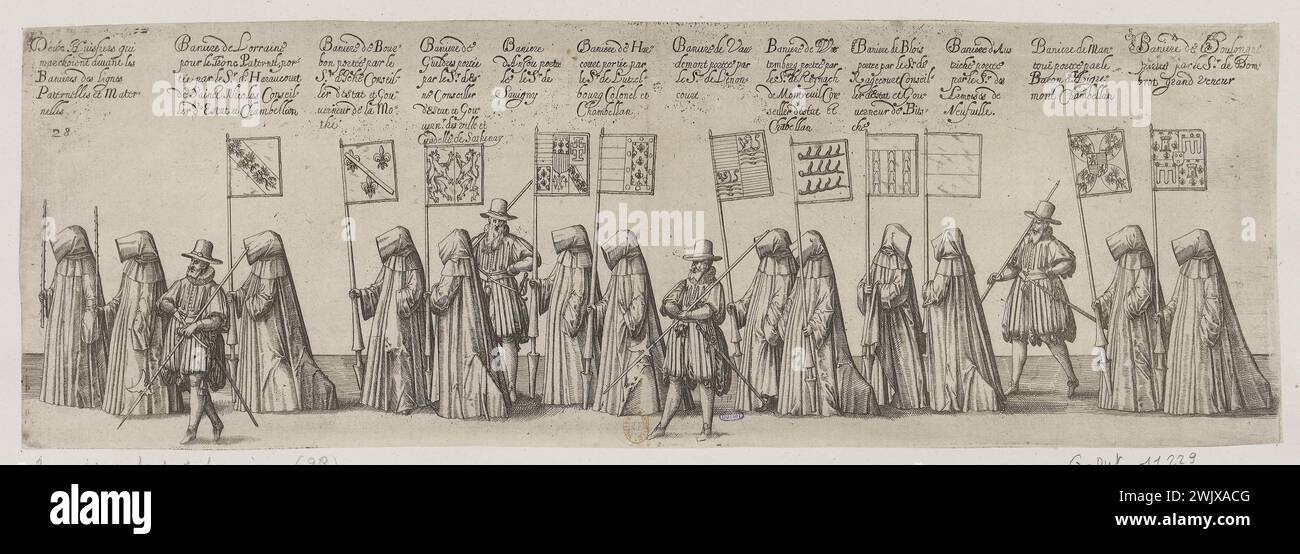 Deux Huissiers qui
marchoient devant les
Banieres des lignes
Paternelles et Mater-
nelles
28
Baniere de Lorraine
pour le Tronc Paternel por-
tée par le Sr. de
de Sainct Nicolas Conseil-
ler d'Estat et Chambellan
Baniere de Bour-
bon portée par le
Sr. Conseil-
ler d'estat et Gou-
verneur de la Mo-
the
Baniere de
Gueldres portée
par le Sr. des
ne Conseiller
d'estat et Gou-
vern. des ville et
Citadelle de
Baniere
d'Anjou portée
par le Sr. de
Savigny
Baniere de Har-
court portée par
le Sr. de Lutzel-
bourg Colonel et
Chambellan
Baniere de Vau-
demont portée par
le Sr. de Lenon-
court
Baniere de Wir-
temberg portée par
le Sr. de
de Montreuil Con-
seiller d'estat et
Chabellan
Baniere de Blois
portée par le Sr. de
Ragecourt Conseil-
ler d'estat et Gou-
verneur de Bits-
che
Baniere d'Aus-
triche portée
par le Sr. des
Armoises de
Neufville
Baniere de Man-
toue portée par le
Baron d'Aigre-
mont Chambellan
Baniere de Boulongne
portée par le Sr. de Dom-
brot grand Veneur
(28)
11229
alamy
Image ID: 2WJXACG
www.alamy.com